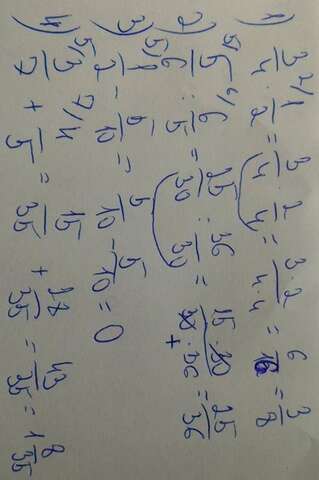 1) 3/4 · 1/2 = 3/4 · 2/4 = 3·2/4·4 = 6/16 = 3/8
2) 5/6 : 6/5 = 25/30 : 36/30 = 25/36
3) 1/2 - 5/10 = 5/10 - 5/10 = 0
4) 3/7 + 4/5 = 15/35 + 28/35 = 43/35 = 1 8/35